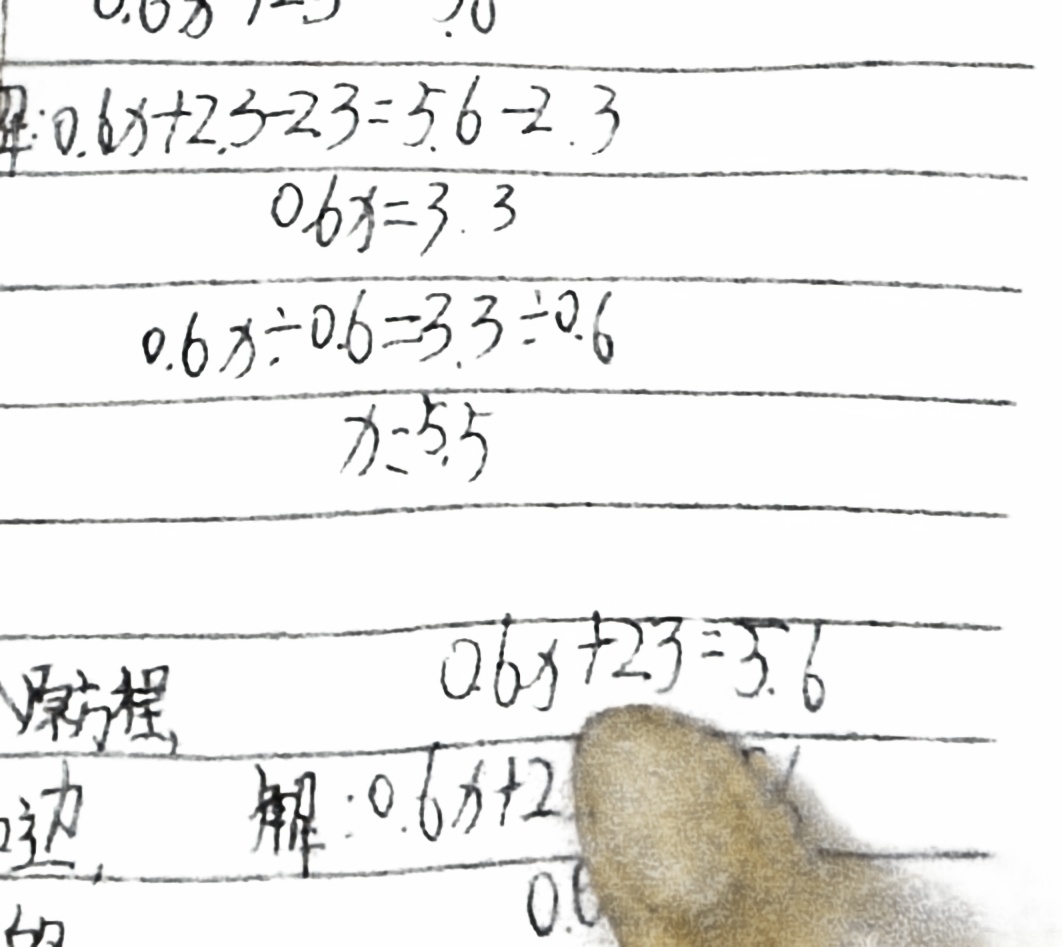 解:0.6x+2.3-2.3=5.6-2.3
0.6x=3.3
0.6x÷0.6=3.3÷0.6
x=5.5
0.6x+2.3=5.6
原方程,
解:0.6x+2
边,
0.6
的